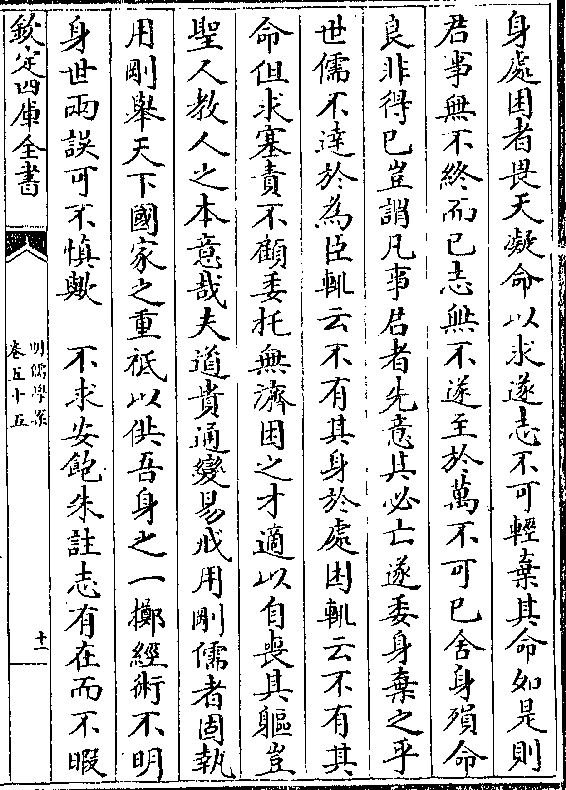 身處困者畏天凝命以求遂志不可輕棄其命如是則
君事無不終而已志無不遂至於萬不可已舍身殞命
良非得已豈謂凡事君者先意其必亡遂委身棄之乎
世儒不達於為臣輒云不有其身於處困輒云不有其
命但求塞責不顧委托無濟困之才適以自喪其軀豈
聖人教人之本意哉夫道貴通變易戒用剛儒者固執
用剛舉天下國家之重祗以供吾身之一擲經術不明
身世兩誤可不慎歟　不求安飽朱註志有在而不暇
欽定四庫全書
明儒學案
卷五十五
十一